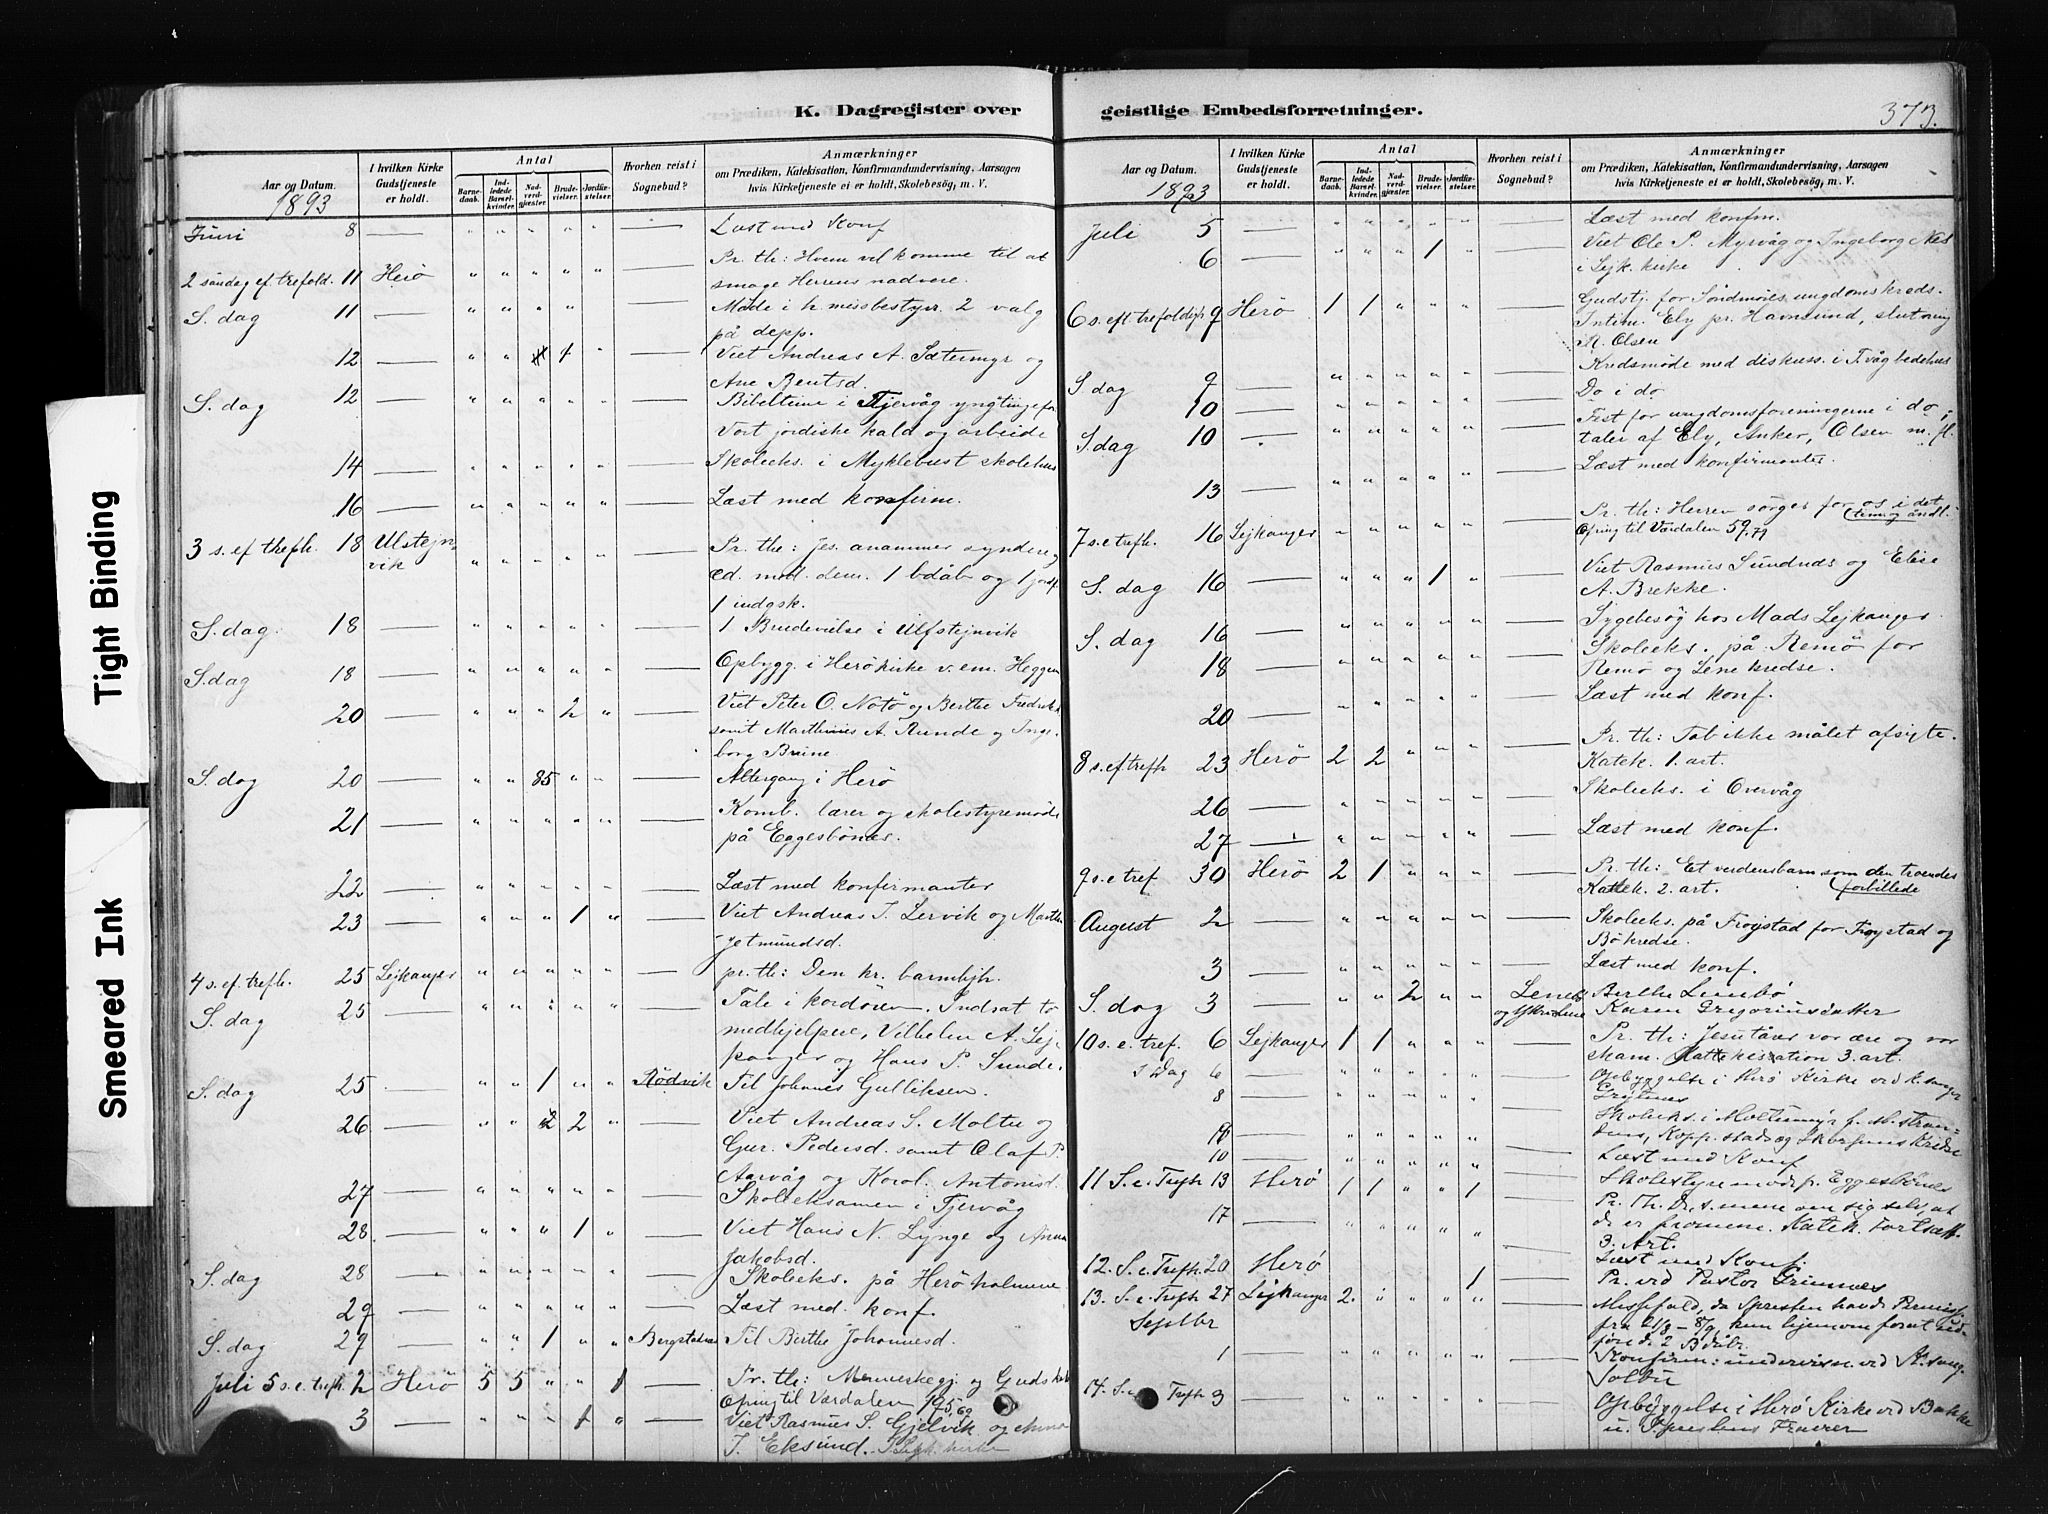 K. Dagregister over
geistlige Embedsforretninger.
373.
Tight Binding
Smeared Ink
Aar og Datum.
1893
I hvilken Kirke Gudstjeneste er holdt.
Antal
Barnedaab.
Indledede Barselkvinder.
Nadverdgjæster.
Brudevielser.
Jordfæstelser.
Hvorhen reist i Sognebud?
Anmærkninger
om Prædiken, Katekisation, Konfirmandundervisning, Aarsagen
hvis Kirketjeneste ei er holdt, Skolebesøg, m. V.
Juni 8 — " " " " " — Læst med Konf
2 søndag ef. trefold. 11 Herö " " " " " — Pr. th: Hvem vil komme til at
smage Herrens nadvere.
S. dag 11 — " " " " — Møde i h missbestyr. 2 valg
på depp.
12 — " " 1 " — Viet Andreas A. Sætermyr og
Ane Bentsd.
S. dag 12 — " " " " " — Bibeltime i Tjervåg
Vort jordiske kald og arbeide
14 — " " " " " — Skoleeks. i Myklebust skolehus
16 — " " " " " — Læst med konfirm.
3 s. ef trefh. 18 Ulstejnvik " " " " " — Pr. th: Jes. anammer syndere og
æd. med dem. 1 bdåb og 1 jordf.
1 indgsk.
S. dag 18 — " " " " " — 1 Brudevielse i Ulfstejnvik
S. dag 18 — " " " " " — Opbygg. i Herö kirke v. em. Heggen
20 — " " " 2 " — Viet Peter O. Notö og Berthe Fredriks
samt Marthinus A. Runde og Inge-
borg Brune.
S. dag 20 — " " 85 " " — Altergang i Herö
21 — " " " " " — Komb. lærer og skolestyremøde
på Eggesbönes.
22 — " " " " " — Læst med konfirmanter
23 — " " " 1 " — Viet Andreas J. Lervik og Marthe
Jetmundsd.
4 s. ef. trefh. 25 Lejkanger " " " " " — pr. th: Den kr. barmhjh.
S. dag 25 — " " " " " — Tale i kordören. Indsat to
medhjelpere, Vilhelm A. Lej-
kanger og Hans P. Sunde.
S. dag 25 — " " 1 " " Rödvik Til Johanes Gulliksen.
26 — " " 2 " — Viet Andreas S. Moltu og
Gur. Pedersd. samt Olaf P.
Aarvåg og Karol. Antonisd.
27 — " " " " " — Skoleeksamen i Tjervåg
28 — " " " 1 " — Viet Hans N. Lynge og Anna
Jakobsd.
S. dag 28 — " " " " " — Skoleeks. på Heröholmene
29 — " " " " " — Læst med konf.
S. dag 29 — " " 1 " " Bergstadnes Til Berthe Johannesd.
Juli 5 s. e. trefh. 2 Herö 5 5 " " 1 — Pr. th: Menneskegj og Guds
Opring til Værdalen 195,69
3 — " " " 1 " — Viet Rasmus S. Gjelvik og Anna
J. Eksund. i Lejk. kirke
Aar og Datum.
1893
I hvilken Kirke Gudstjeneste er holdt.
Antal
Barnedaab.
Indledede Barselkvinder.
Nadverdgjæster.
Brudevielser.
Jordfæstelser.
Hvorhen reist i Sognebud?
Anmærkninger
om Prædiken, Katekisation, Konfirmandundervisning, Aarsagen
hvis Kirketjeneste ei er holdt, Skolebesøg, m. V.
Juli 5 — " " " " " — Læst med konfm.
6 — " " " 1 " — Viet Ole P. Myrvåg og Ingeborg Nes
i Lejk. kirke
6 s. eft. trefoldigh 9 Herö 1 1 " " " — Gudstj. for Söndmöres ungdomskreds.
Intim. Ely pr. Havnsund, slutning
Olsen
S dag 9 — " " " " " — Kredsmøde med diskuss. i T.våg bedehus
10 — " " " " " — Do i do
S dag 10 " " " " " — Fest for ungdomsforeningerne i do,
taler af Ely, Anker, Olsen m. fl.
13 — " " " " " — Læst med konfirmanter.
7 s. e trefh. 16 Lejkanger " " " " " — Pr. th: Herren sörger for os i det
tim og åndl.
Opring til Værdalen 59,79
S. dag 16 — " " " 1 " — Viet Rasmus Sundnæs og Elise
A. Brekke.
S. dag 16 — " " " " " — Sygebesög hos Mads Lejkanger
18 — " " " " " — Skoleeks. på Remö for
Remö og Lene kredse.
20 — " " " " " — Læst med konf.
8 s. ef trefh 23 Herö 2 2 " " " — Pr. th: Tab ikke målet afsyte.
Katek. 1. art.
26 — " " " " " — Skoleeks. i Overvåg
27 — " " " " " — Læst med konf.
9 s. e tref 30 Herö 2 1 " " " — Pr. th: Et verdensbarn som den troendes
forbillede
Katek. 2. art.
August 2 — " " " " " — Skoleeks på Fröystad for Fröystad og
Bö kredse.
3 — " " " " " — Læst med konf.
S. dag 3 — " " 2 " " Berthe Lembö
Karen Gregoriusdatter
10 s. e. tref. 6 Lejkanger 1 1 " " " — Pr. th: Jesu tårer vor ære og vor
skam. Kattekisation 3. art.
S Dag 6 — " " " " " — Opbyggelse i Herö Kirke ved k. sanger
Grytnes
8 — " " " " " — Skoleeks. i Moltumyr f.
Koppstad og Kredse
10 — " " " " " — Læst med Konf
10 — " " " " " — Skolestyremøde p. Eggesbönes
11 S. e. Trefh 13 Herö 1 1 " " 1 — Pr. Th. D, s. mene om sig selv, at
de er fromme. Katek. Fortsætt.
3. Art.
17 — " " " " " — Læst med Konf.
12. S. e. Trefh 20 Herö 1 — Pr. ved Pastor Grimnes
13. S. e Trefh 27 Lejkanger 2. " " " " — Messefald, da Spresten havde Permiss.
fra 21/8 – 8/9, kun hjemme
2 Bdåb.
Septbr
1 — " " " " " — Konfirm: undervisn. ved K.sang.
Solbu
14. S. e Trefh 3 — " " " " " — Opbyggelse i Herö Kirke ved Bakke
u. Sprestens Fravær